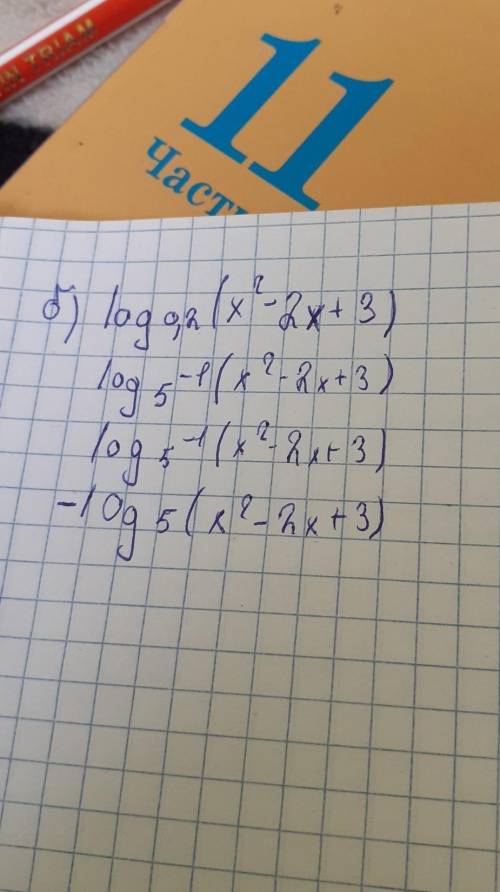 IN TRIAM
11
Часть
б) log₀,₂(x² - 2x + 3)
log₅⁻¹(x² - 2x + 3)
log₅⁻¹(x² - 2x + 3)
-log₅(x² - 2x + 3)